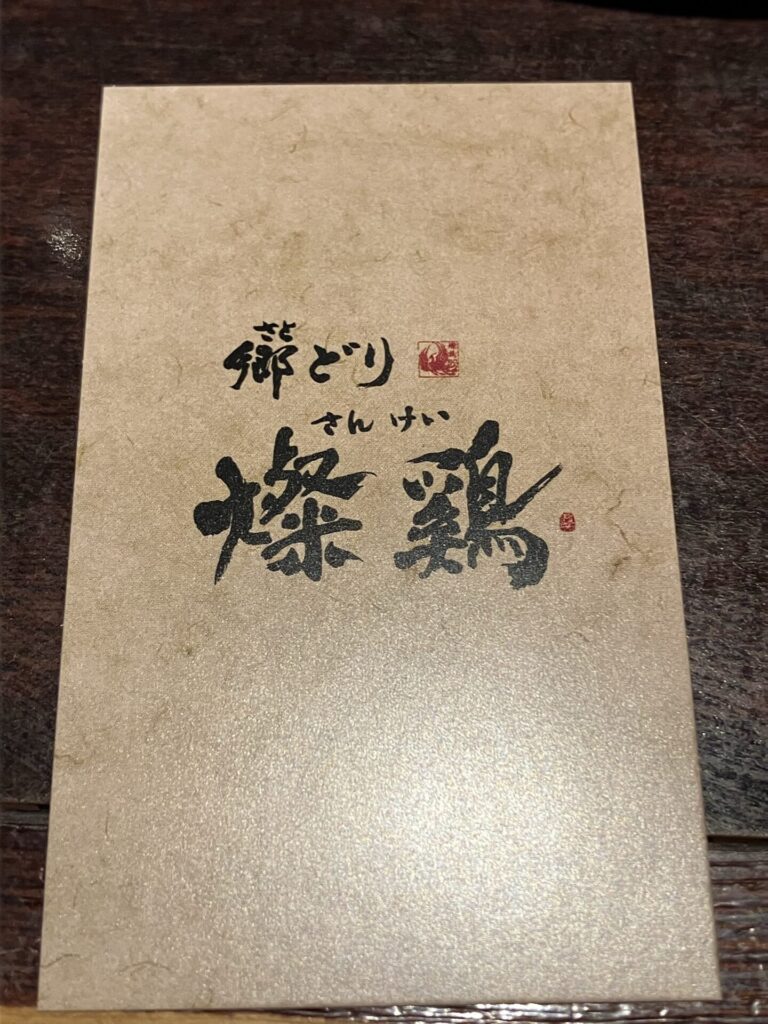 さと
郷どり
さんけい
燦鶏